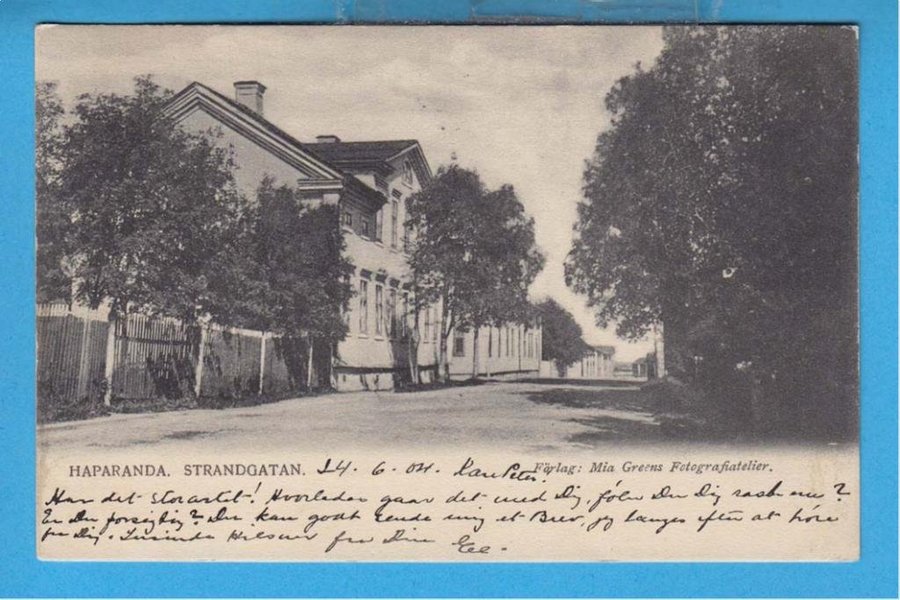 HAPARANDA. STRANDGATAN. 14. 6. 04. Kære Peter!
Förlag: Mia Greens Fotografiatelier.
Har det storartet! Hvorledes gaar det med Dig, föler Du Dig rask nu?
Er Du forsigtig? Du kan godt sende mig et Brev, jeg længes efter at höre
fra Dig. Hilsner fra Din